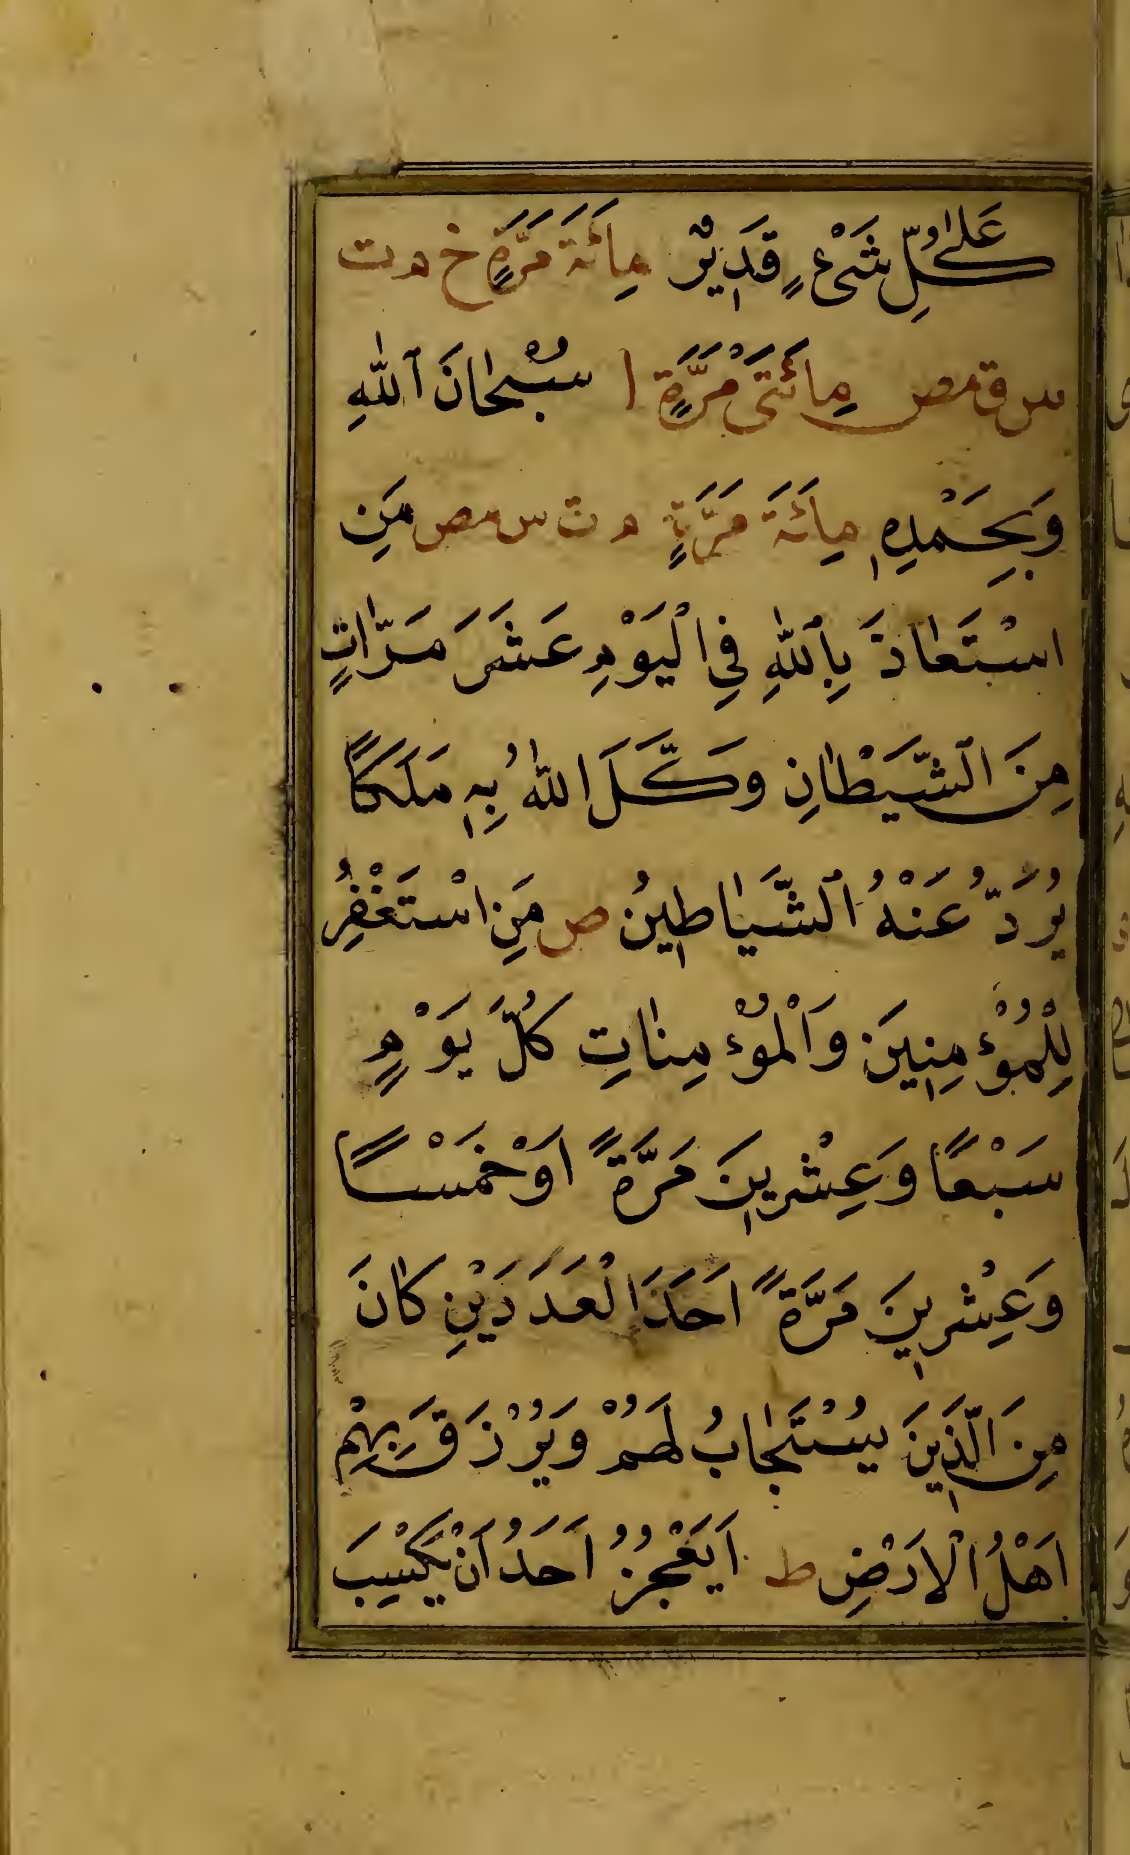 عَلٰى كُلِّ شَىْءٍ قَدِيْرٌ مِائَةَ مَرَّةٍ خ م ت
س ق مص مِائَتَىْ مَرَّةٍ ا سُبْحَانَ اللّٰهِ
وَبِحَمْدِهٖ مِائَةَ مَرَّةٍ م ت س مص مَنِ
اسْتَعَاذَ بِاللّٰهِ فِى الْيَوْمِ عَشَرَ مَرَّاتٍ
مِنَ الشَّيْطَانِ وَكَّلَ اللّٰهُ بِهٖ مَلَكًا
يَرُدُّ عَنْهُ الشَّيَاطِينُ ص مَنِ اسْتَغْفِرُ
لِلْمُؤْمِنِينَ وَالْمُؤْمِنَاتِ كُلَّ يَوْمٍ
سَبْعًا وَعِشْرِينَ مَرَّةً اَوْخَمْسًا
وَعِشْرِينَ مَرَّةً اَحَدَ الْعَدَدَيْنِ كَانَ
مِنَ الَّذَينَ يُسْتَجَابُ لَهُمْ وَيُرْزَقَ بِهِمْ
اَهْلُ الْاَرْضِ ط اَيَعْجِزُ اَحَدُ اَنْ يَكْسِبَ